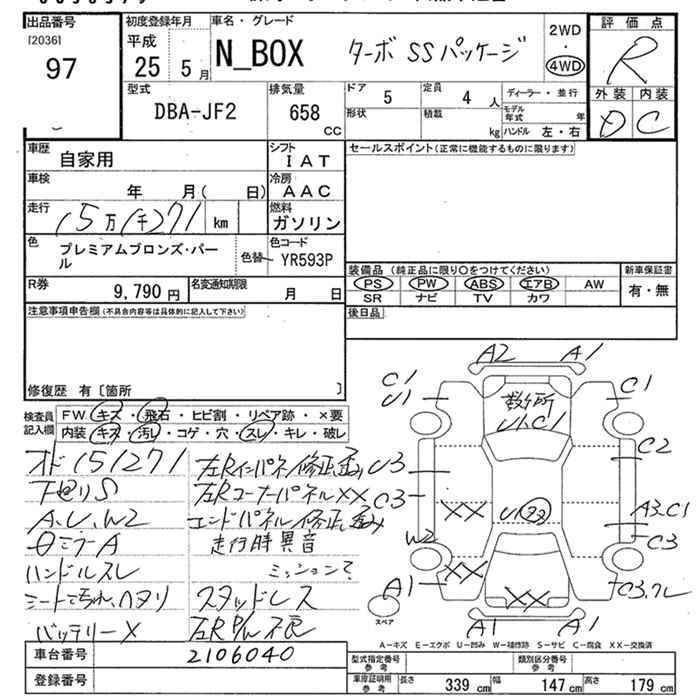 出品番号
[2036]
97
初度登録年月
平成
25 5月
車名・グレード
N_BOX ターボ SSパッケージ
2WD
・
4WD
評価点
R
外装 内装
D C
型式
DBA-JF2
排気量
658
cc
ドア
5
定員
4 人
ディーラー・並行
形状
積載
kg
モデル年式 年
ハンドル 左・右
車歴
自家用
シフト
IAT
セールスポイント(正常に機能するものに限ります)
車検
年 月( 日)
冷房
AAC
走行
15万(千)271 km
燃料
ガソリン
色
プレミアムブロンズ・パール
色替
色コード
YR593P
装備品(純正品に限り○をつけてください)
新車保証書
PS PW ABS エアB AW
有・無
SR ナビ TV カワ
R券
9,790 円
名変通知期限
月 日
後日品
注意事項申告欄(不具合内容等は具体的に記入して下さい)
修復歴 有〔箇所 〕
検査員記入欄
FW キズ・飛石・ヒビ割・リペア跡・×要
内装 キズ・汚れ・コゲ・穴・スレ・キレ・破レ
オド151271
左Rインパネ修正歪み
下廻りS
左RコーナーパネルXX
A、U、W2
エンドパネル修正歪み
ミラーA
走行時異音
ハンドルスレ
ミッション?
シート汚れ、ヘタリ
スタッドレス
バッテリーX
左R P/W 不良
A2 A1
C1
U1
C1
数ヶ所
U1、C1
C2
U3
C3
XX
U1
XX
A3、C1
W2
C3
XX
A1
XX
A1 A1
スペア
A-キズ E-エクボ U-凹み W-補修跡 S-サビ C-腐食 XX-交換済
車台番号
2106040
型式指定番号
参考
類別区分番号
参考
登録番号
車庫証明用
参考
長さ
339 cm
幅
147 cm
高さ
179 cm